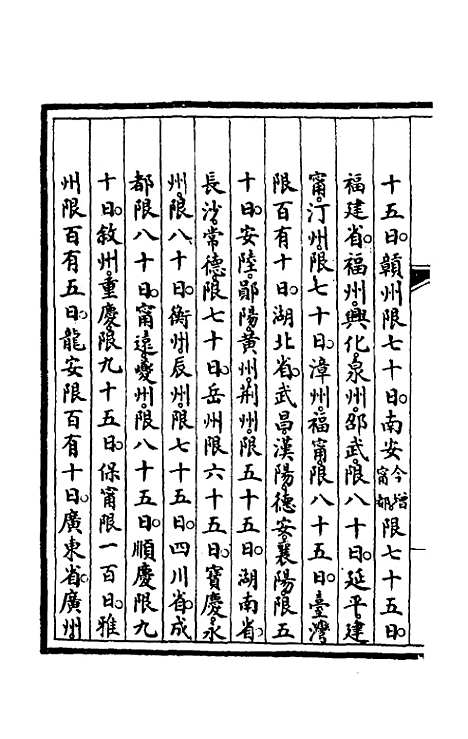 十五日。贛州限七十日。南安今增甯都限七十五日。
福建省。福州。興化。泉州。邵武。限八十日。延平。建
甯。汀州。限七十日。漳州。福甯。限八十五日。臺灣
限百有十日。湖北省。武昌。漢陽。德安。襄陽。限五
十日。安陸。鄖陽。黃州。荆州。限五十五日。湖南省。
長沙。常德。限七十日。岳州限六十五日。寶慶。永
州。限八十日。衡州。辰州。限七十五日。四川省。成
都限八十日。甯遠。夔州。限八十五日。順慶限九
十日。敘州。重慶。限九十五日。保甯限一百日。雅
州限百有五日。龍安限百有十日。廣東省。廣州